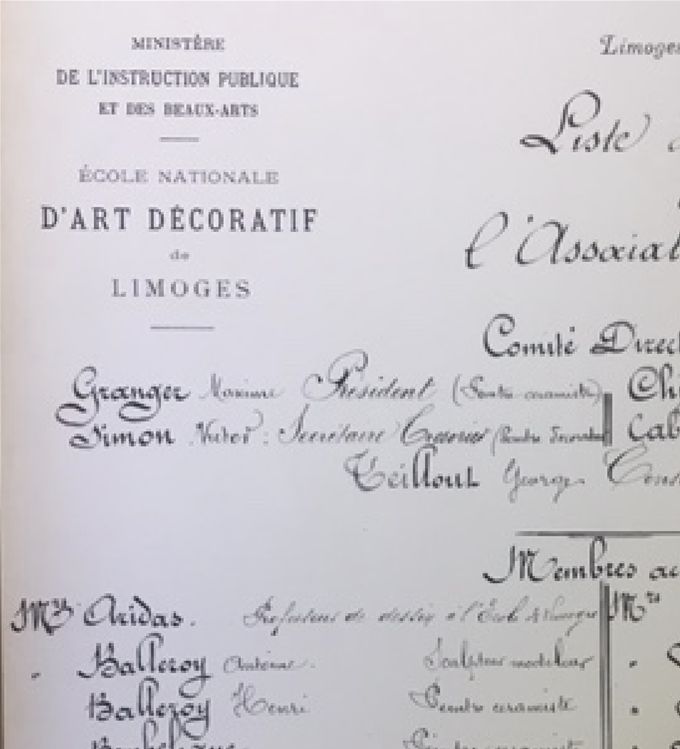 MINISTÈRE
DE L'INSTRUCTION PUBLIQUE
ET DES BEAUX-ARTS
ÉCOLE NATIONALE
D'ART DÉCORATIF
de
LIMOGES
Limoges
Liste
l'Associat
Comité Direct
Granger Maxime Président (Peintre céramiste) Ch
Simon Victor : Secrétaire Trésorier (Peintre Décorateur) Cab
Teillout George Cons
Membres ac
Mrs Aridas. Professeur de dessin à l'École de Limoges Mrs
Balleroy Antoine. Sculpteur modeleur
Balleroy Henri Peintre céramiste
Peintre céramiste